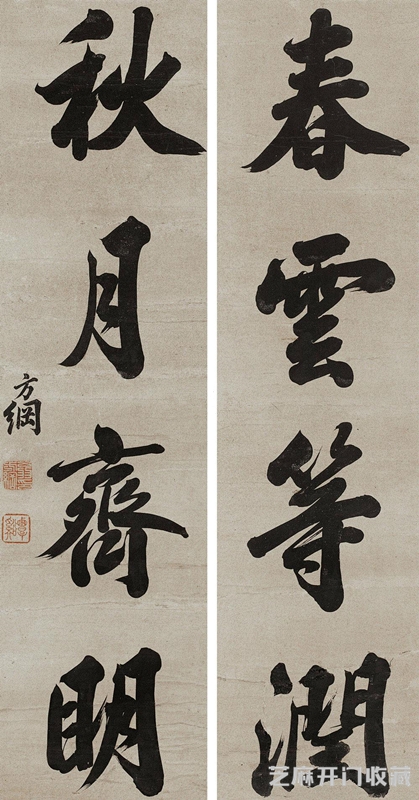 春雲等潤
秋月齊明
方綱
芝麻开门收藏